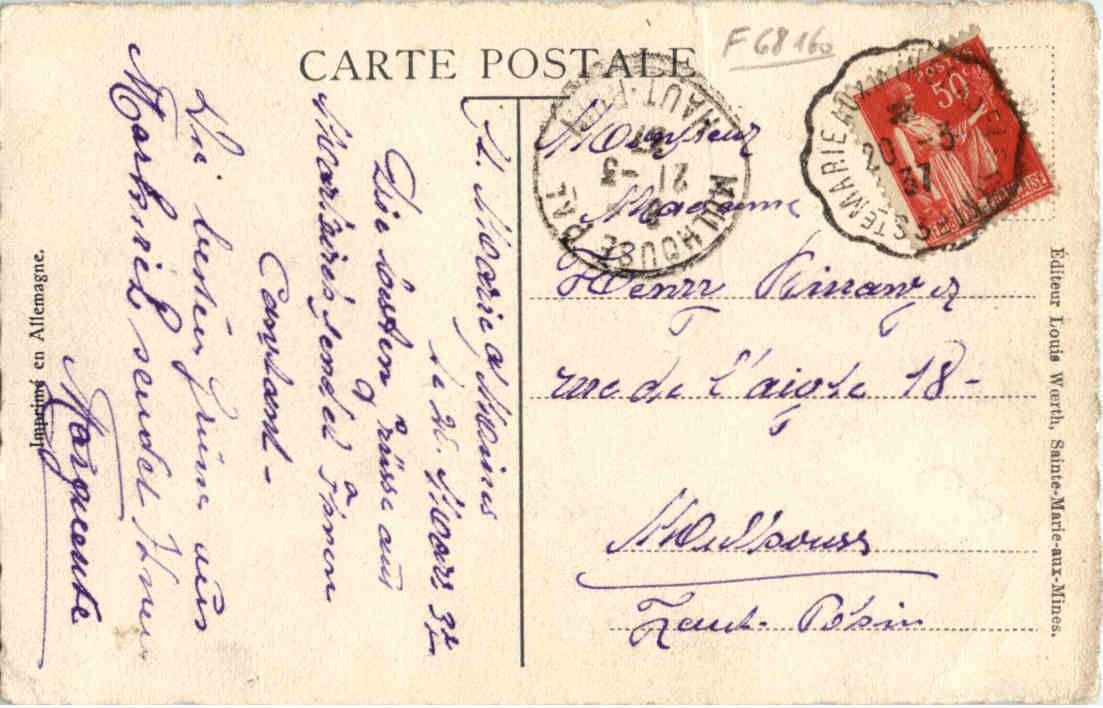 CARTE POSTALE
F 68160
St. Marie a. Mines
le 20. Mars 37
Die besten Grüsse aus
Markirch sendet Ihnen
Constant -
Die besten Grüsse aus
Markirch sendet Ihnen
Marguerite
Monsieur
Madame
Henry
rue de l'aigle 18-
Mulhouse
Haut-Rhin
MULHOUSE GAL
HAUT-RHIN
21 - 3
37
STE MARIE AUX MIN
20 - 3
37
POSTES
50c
Imprimé en Allemagne.
Éditeur Louis Wœrth, Sainte-Marie-aux-Mines.